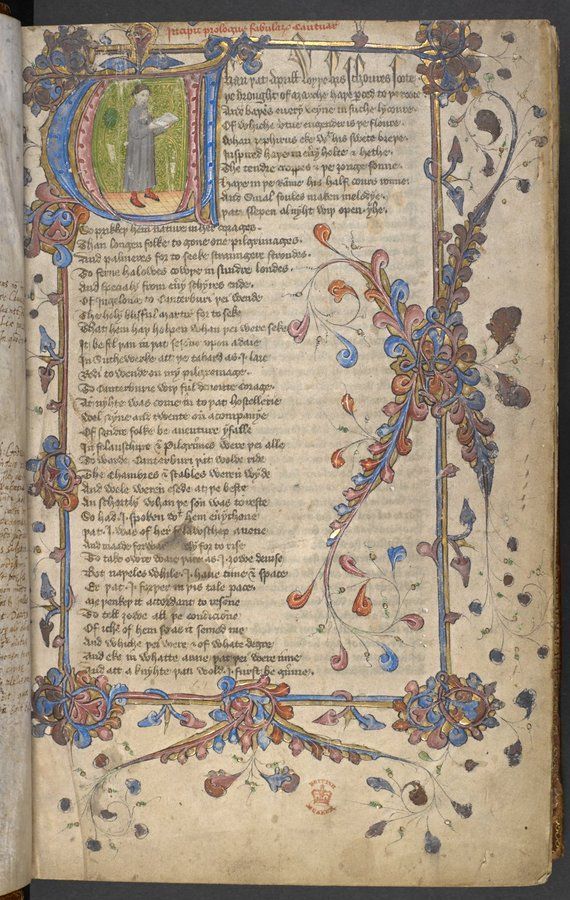 Incipit prologus fabularum Cantuar
Whan þat Aprill wyþ his schoures soote
þe drought of marche haþe þeced to þe roote
And baþed euery veyne in suche lycoure
Of whiche vertue engendred is þe floure
Whan zephirus eke wt his swete breþe
Inspired haþe in euery holte & hethe
The tendre croppes & þe yonge sonne
Haþe in þe Ramme his half cours ronne
And Smal foules maken melodye
þat slepen al nyht wiþ open yhe
So prikkeþ hem nature in her corages
Than longen folke to gone on pilgrimages
And palmeres for to seeke straungere strondes
To ferne halowes cowþe in sundre londes
And specialy from euery schyres ende
Of Ingelond to Canterburi þei wende
The holy blisful martir for to seke
That hem haþ holpen whan þei were seke
It befil þan in þat sesone vpon a daie
In Suthewerke att þe tabard as I laie
Redi to wende on my pilgremage
To Canterburie wiþ ful deuoute corage
At nyhte was come in to þat hostellerie
Wel nyne and twente on a companye
Of sondre folke be auenture yfalle
In felauschipe & Pilgrimes were þei alle
To warde Canterburi þat wolde ride
The Chambres & stables weren wyde
And wele weren esede at þe beste
An schortly whan þe son was to reste
So had I spoken wt hem euerychone
þat I was of her felawschep anone
And made forward erly for to rise
To take owre waie þare as I yowe deuise
Bot naþeles while I haue time & space
Er þat I forþer in þis tale pace
Me þenkeþ it accordant to resone
To tell yowe all þe condicione
Of iche of hem so as it semed me
And whiche þei were & of whate degre
And eke in whatte araie þat þei were inne
And att a knyhte þan wold I furst be ginne
BRITISH
MUSEUM